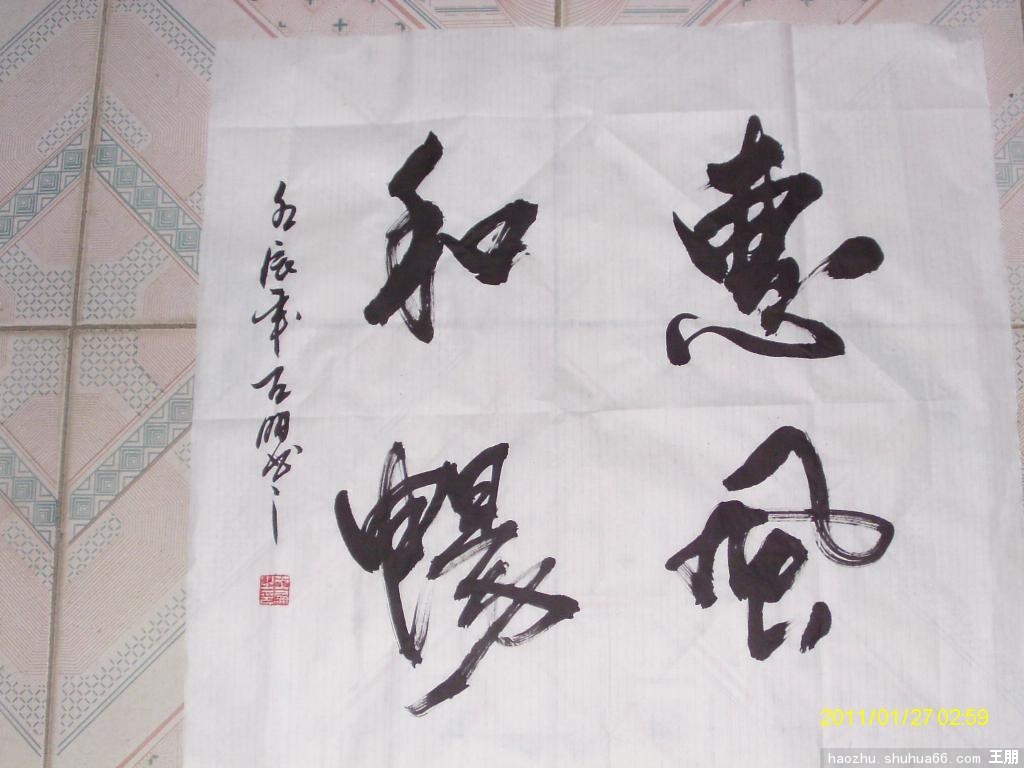 惠风
和畼
年
2011/01/27 02:59
haozhu.shuhua66.com 王朋